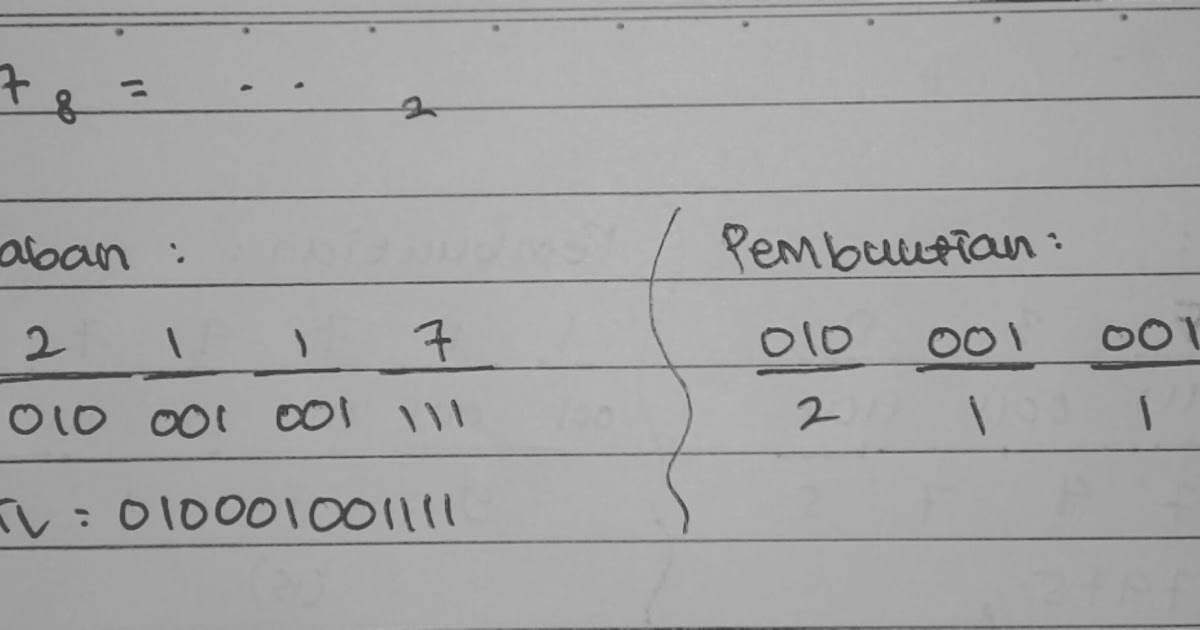 7 8 = . . 2
aban :
2 1 1 7
010 001 001 111
= 010001001111
Pembuutian :
010 001 001
2 1 1